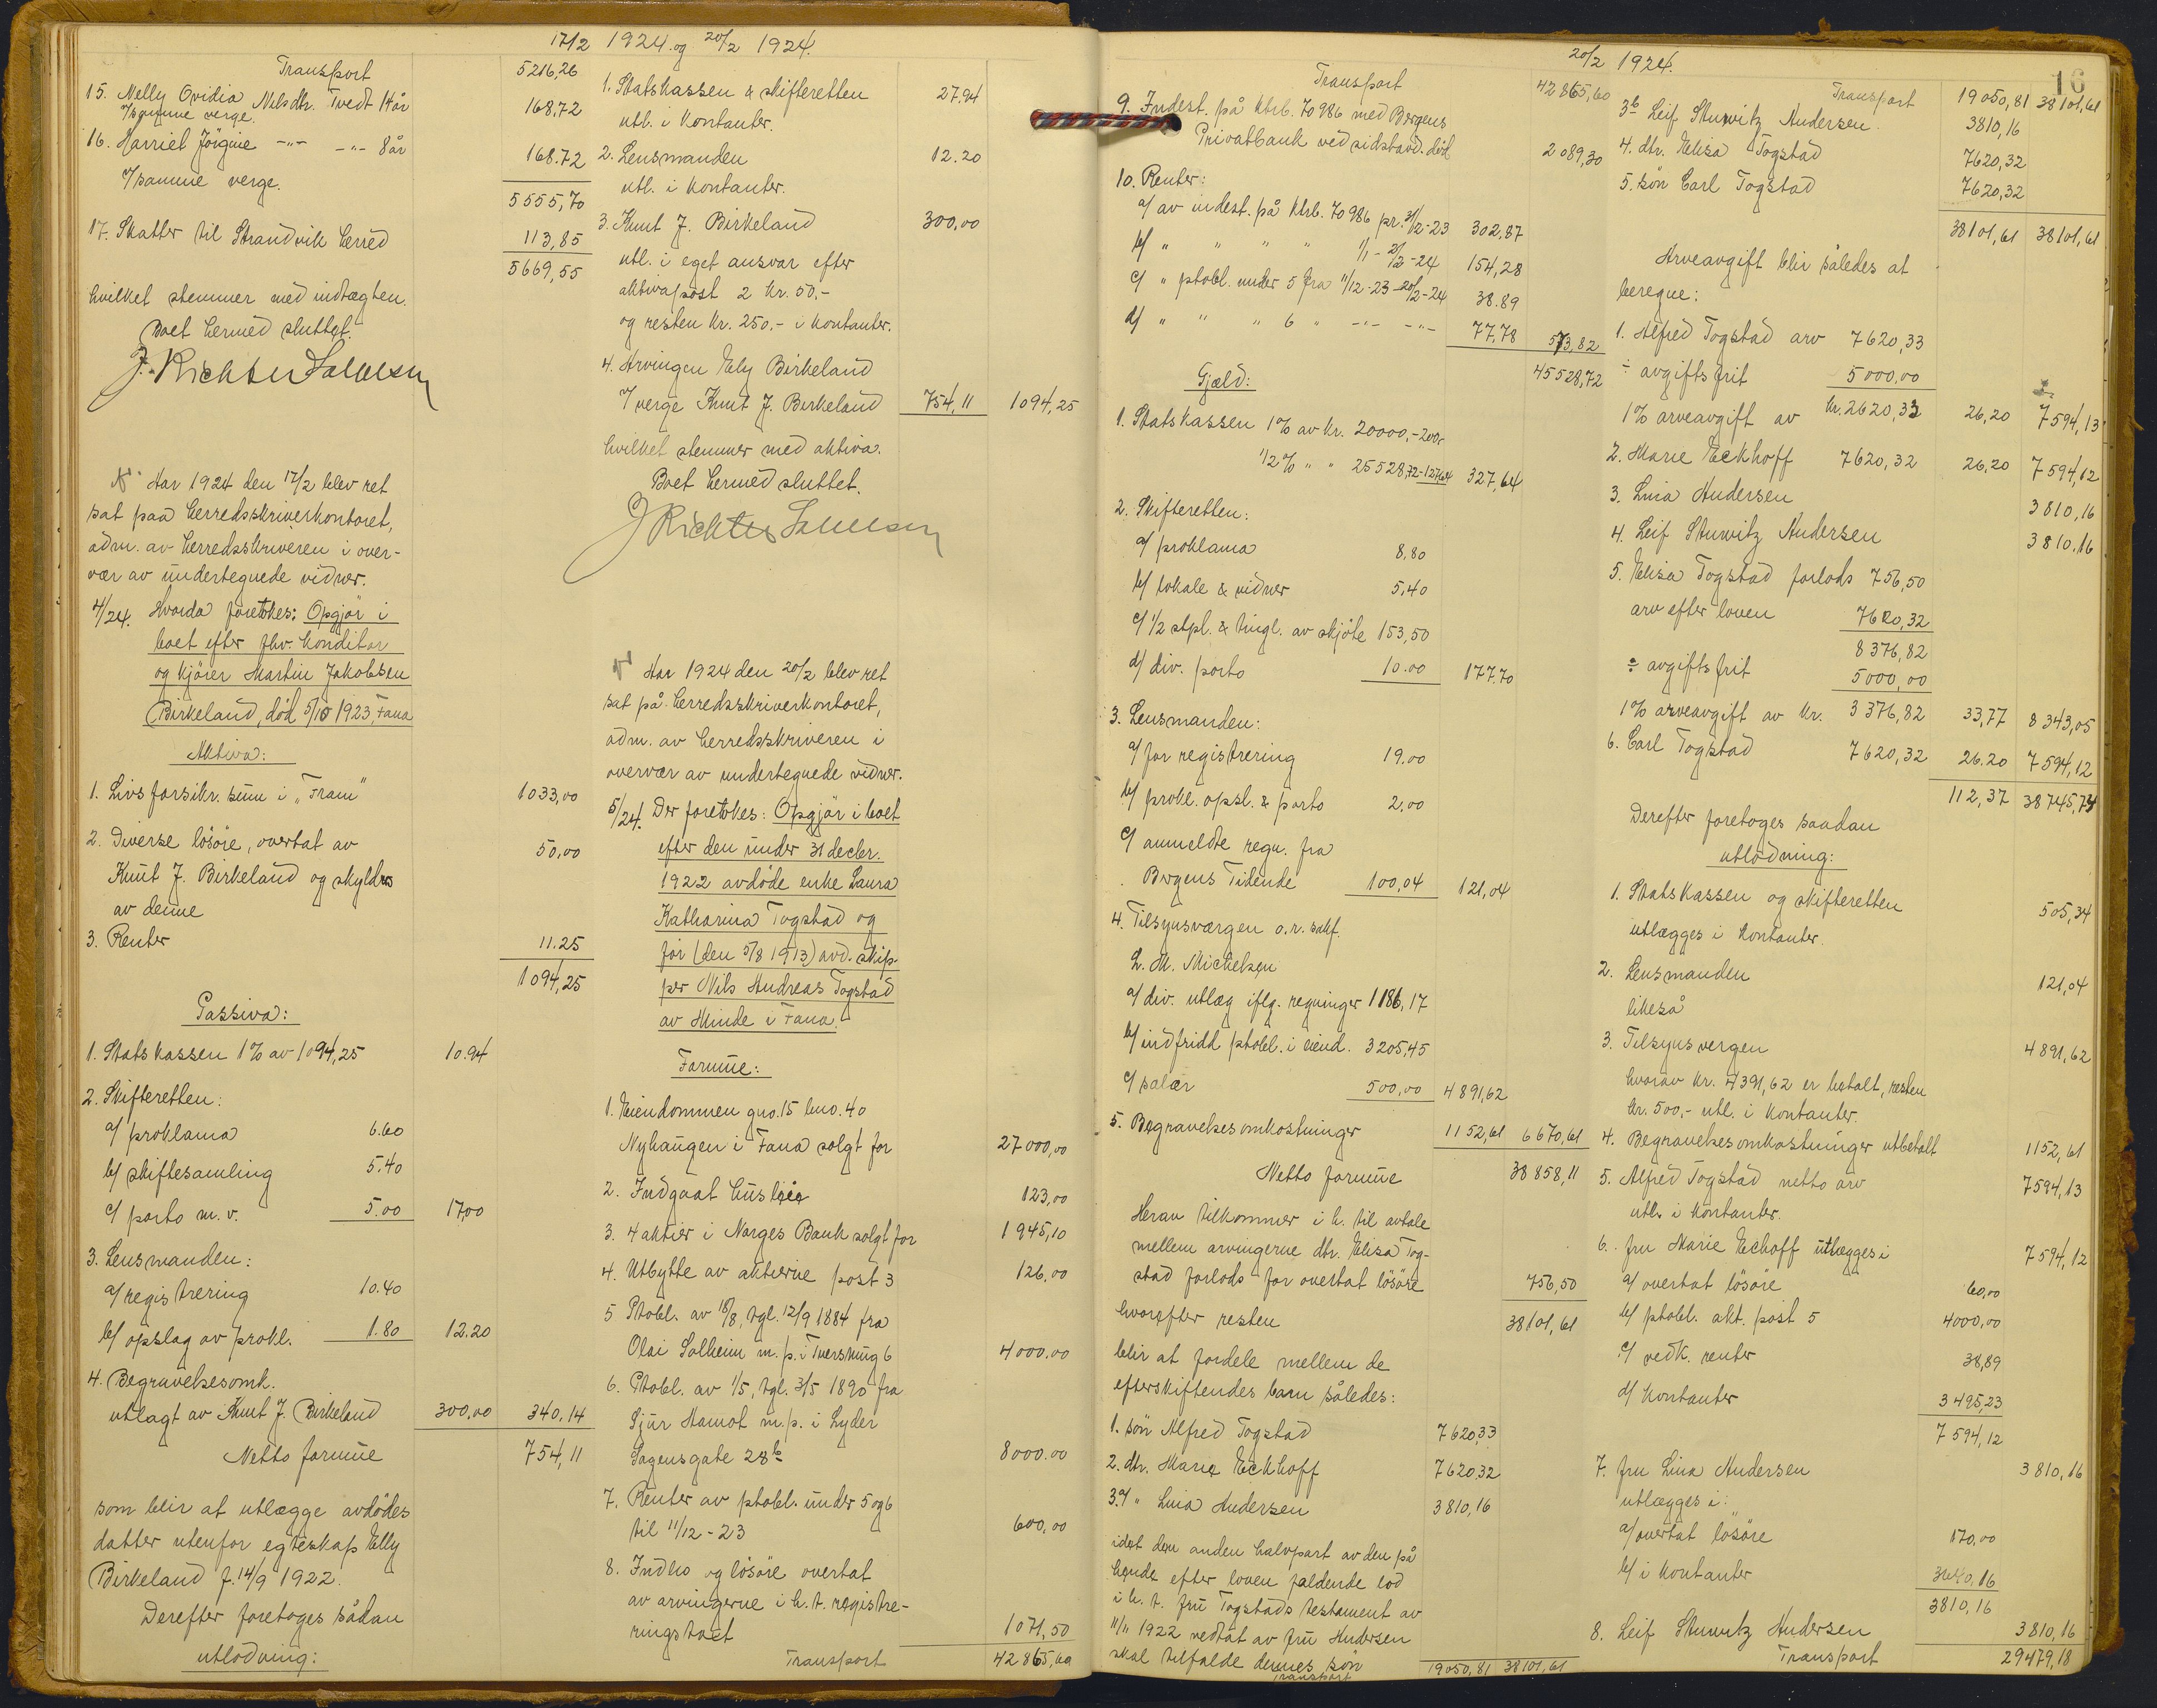 17/2 1924 og 20/2 1924.
Transport 5216,26
15. Nelly Ovidia Nilsdtr. Tvedt 14 år
v/samme verge. 168,72
16. Harriet Jörgine -"- -"- 8 år
v/samme verge. 168.72
5555,70
17. Skatter til Strandvik herred 113,85
5669,55
hvilket stemmer med indtægten.
Boet hermed sluttet.
J. Richter Salvesen
Aar 1924 den 17/2 blev ret
sat paa herredsskriverkontoret,
adm. av herredsskriveren i over-
vær av undertegnede vidner.
4/24. Hvorda foretokes: Opgjör i
boet efter fhv. konditor
og kjører Martin Jakobsen
Birkeland, död 5/10 1923, Fana
Aktiva:
1. Livsforsikr. sum i "Fram" 1033,00
2. Diverse lösöre, overtat av 50,00
Knut J. Birkeland og skyldes
av denne
3. Renter 11.25
1094,25
Passiva:
1. Statskassen 1% av 1094,25 10.94
2. Skifteretten:
a/ proklama 6.60
b/ skiftesamling 5.40
c/ porto m. v. 5.00 17,00
3. Lensmanden:
a/ registrering 10.40
b/ opslag av prokl. 1.80 12.20
4. Begravelsesomk.
utlagt av Knut J. Birkeland 300,00 340,14
Netto formue 754,11
som blir at utlægge avdödes
datter utenfor egteskap Elly
Birkeland f. 14/9 1922.
Derefter foretoges sådan
utlodning:
1. Statskassen & skifteretten 27.94
utl. i kontanter.
2. Lensmanden 12.20
utl. i kontanter.
3. Knut J. Birkeland 300,00
utl. i eget ansvar efter
aktivapost 2 kr. 50,-
og resten kr. 250,- i kontanter.
4. Arvingen Elly Birkeland
v/verge Knut J. Birkeland 754,11 1094,25
hvilket stemmer med aktiva.
Boet hermed sluttet.
J Richter Salvesen
Aar 1924 den 20/2 blev ret
sat på herredsskriverkontoret,
adm. av herredsskriveren i
overvær av undertegnede vidner.
5/24. Der foretokes: Opgjör i boet
efter den under 31 decbr.
1922 avdöde enke Laura
Katharina Togstad og
för (den 5/8 1913) avd. skip-
per Nils Andreas Togstad
av Minde i Fana.
Formue:
1. Eiendommen gno. 15 bno. 40
Nyhaugen i Fana solgt for 27000,00
2. Indgaat husleie 123,00
3. 4 aktier i Norges Bank solgt for 1945,10
4. Utbytte av aktierne post 3 126,00
5 Ptobl. av 18/8, tgl. 12/9 1884 fra
Olai Solheim m. p. i Tversmug 6 4000.00
6. Ptobl. av 1/5, tgl. 3/5 1890 fra
Sjur Hamot m. p. i Lyder
Sagensgate 28b 8000.00
7. Renter av ptobl. under 5 og 6
til 11/12-23 600,00
8. Indbo og lösöre overtat
av arvingerne i h. t. registre-
ringstaxt 1071,50
Transport 42865,60
20/2 1924.
16
Transport 42865,60
9. Indest. på ktrb. 70986 med Bergens
Privatbank ved sidstavd. död 2089,30
10. Renter:
a/ av indest. på ktrb. 70986 pr. 31/12-23 302,87
b/ " " " " 1/1-20/2-24 154,28
c/ " ptobl. under 5 fra 11/12-23-20/2-24 38.89
d/ " " " 6 " -"- -"- 77,78 573,82
45528,72
Gjæld:
1. Statskassen 1% av kr. 20000,- 200,-
1/2% " " 25528,72-127,64 327,64
2. Skifteretten:
a/ proklama 8,80
b/ lokale & vidner 5,40
c/ 1/2 stpl. & tingl. av skjöte 153,50
d/ div. porto 10.00 177.70
3. Lensmanden:
a/ for registrering 19.00
b/ prokl. opsl. & porto 2,00
c/ anmeldte regn. fra
Bergens Tidende 100,04 121,04
4. Tilsynsværgen o.r. sakf.
L. M. Michelsen
a/ div. utlæg iflg. regninger 1186,17
b/ indfridd ptobl. i eiend. 3205,45
c/ salær 500,00 4891,62
5. Begravelsesomkostninger 1152,61 6670,61
Netto formue 38858,11
Herav tilkommer i h. til avtale
mellem arvingerne dtr. Elisa Tog-
stad forlods for overtat lösöre 756,50
hvorefter resten 38101,61
blir at fordele mellem de
efterskiftendes barn således:
1. sön Alfred Togstad 7620,33
2. dtr. Marie Eckhoff 7620,32
3.a/ " Lina Andersen 3810,16
idet den anden halvpart av den på
hende efter loven faldende lod
i h. t. fru Togstads testament av
11/11 1922 vedtat av fru Andersen
skal tilfalde dennes sön
Transport 19050,81 38101,61
Transport 19050,81 38101,61
3b Leif Stuwitz Andersen. 3810,16
4. dtr. Elisa Togstad 7620,32
5. sön Carl Togstad 7620,32
38101,61 38101,61
Arveavgift blir således at
beregne:
1. Alfred Togstad arv 7620,33
÷ avgiftsfrit 5000,00
1% arveavgift av kr. 2620,33 26,20 7594,13
2. Marie Eckhoff 7620,32 26,20 7594,12
3. Lina Andersen 3810,16
4. Leif Stuwitz Andersen 3810.16
5. Elisa Togstad forlods 756,50
arv efter loven 7620,32
8376,82
÷ avgiftsfrit 5000,00
1% arveavgift av kr. 3376,82 33,77 8343,05
6. Carl Togstad 7620,32 26.20 7594,12
112,37 38745,74
Derefter foretoges saadan
utlodning:
1. Statskassen og skifteretten 505,34
utlægges i kontanter.
2. Lensmanden 121,04
likeså
3. Tilsynsvergen 4891,62
hvorav kr. 4391,62 er betalt, resten
kr. 500,- utl. i kontanter.
4. Begravelsesomkostninger utbetalt 1152,61
5. Alfred Togstad netto arv 7594,13
utl. i kontanter.
6. fru Marie Echoff utlægges i 7594,12
a/ overtat lösöre 60,00
b/ ptobl. akt. post 5 4000,00
c/ vedk. renter 38,89
d/ kontanter 3495,23
7594,12
7. fru Lina Andersen 3810,16
utlægges i:
a/ overtat lösöre 170,00
b/ i kontanter 3640,16
3810,16
8. Leif Stuwitz Andersen 3810,16
Transport 29479,18